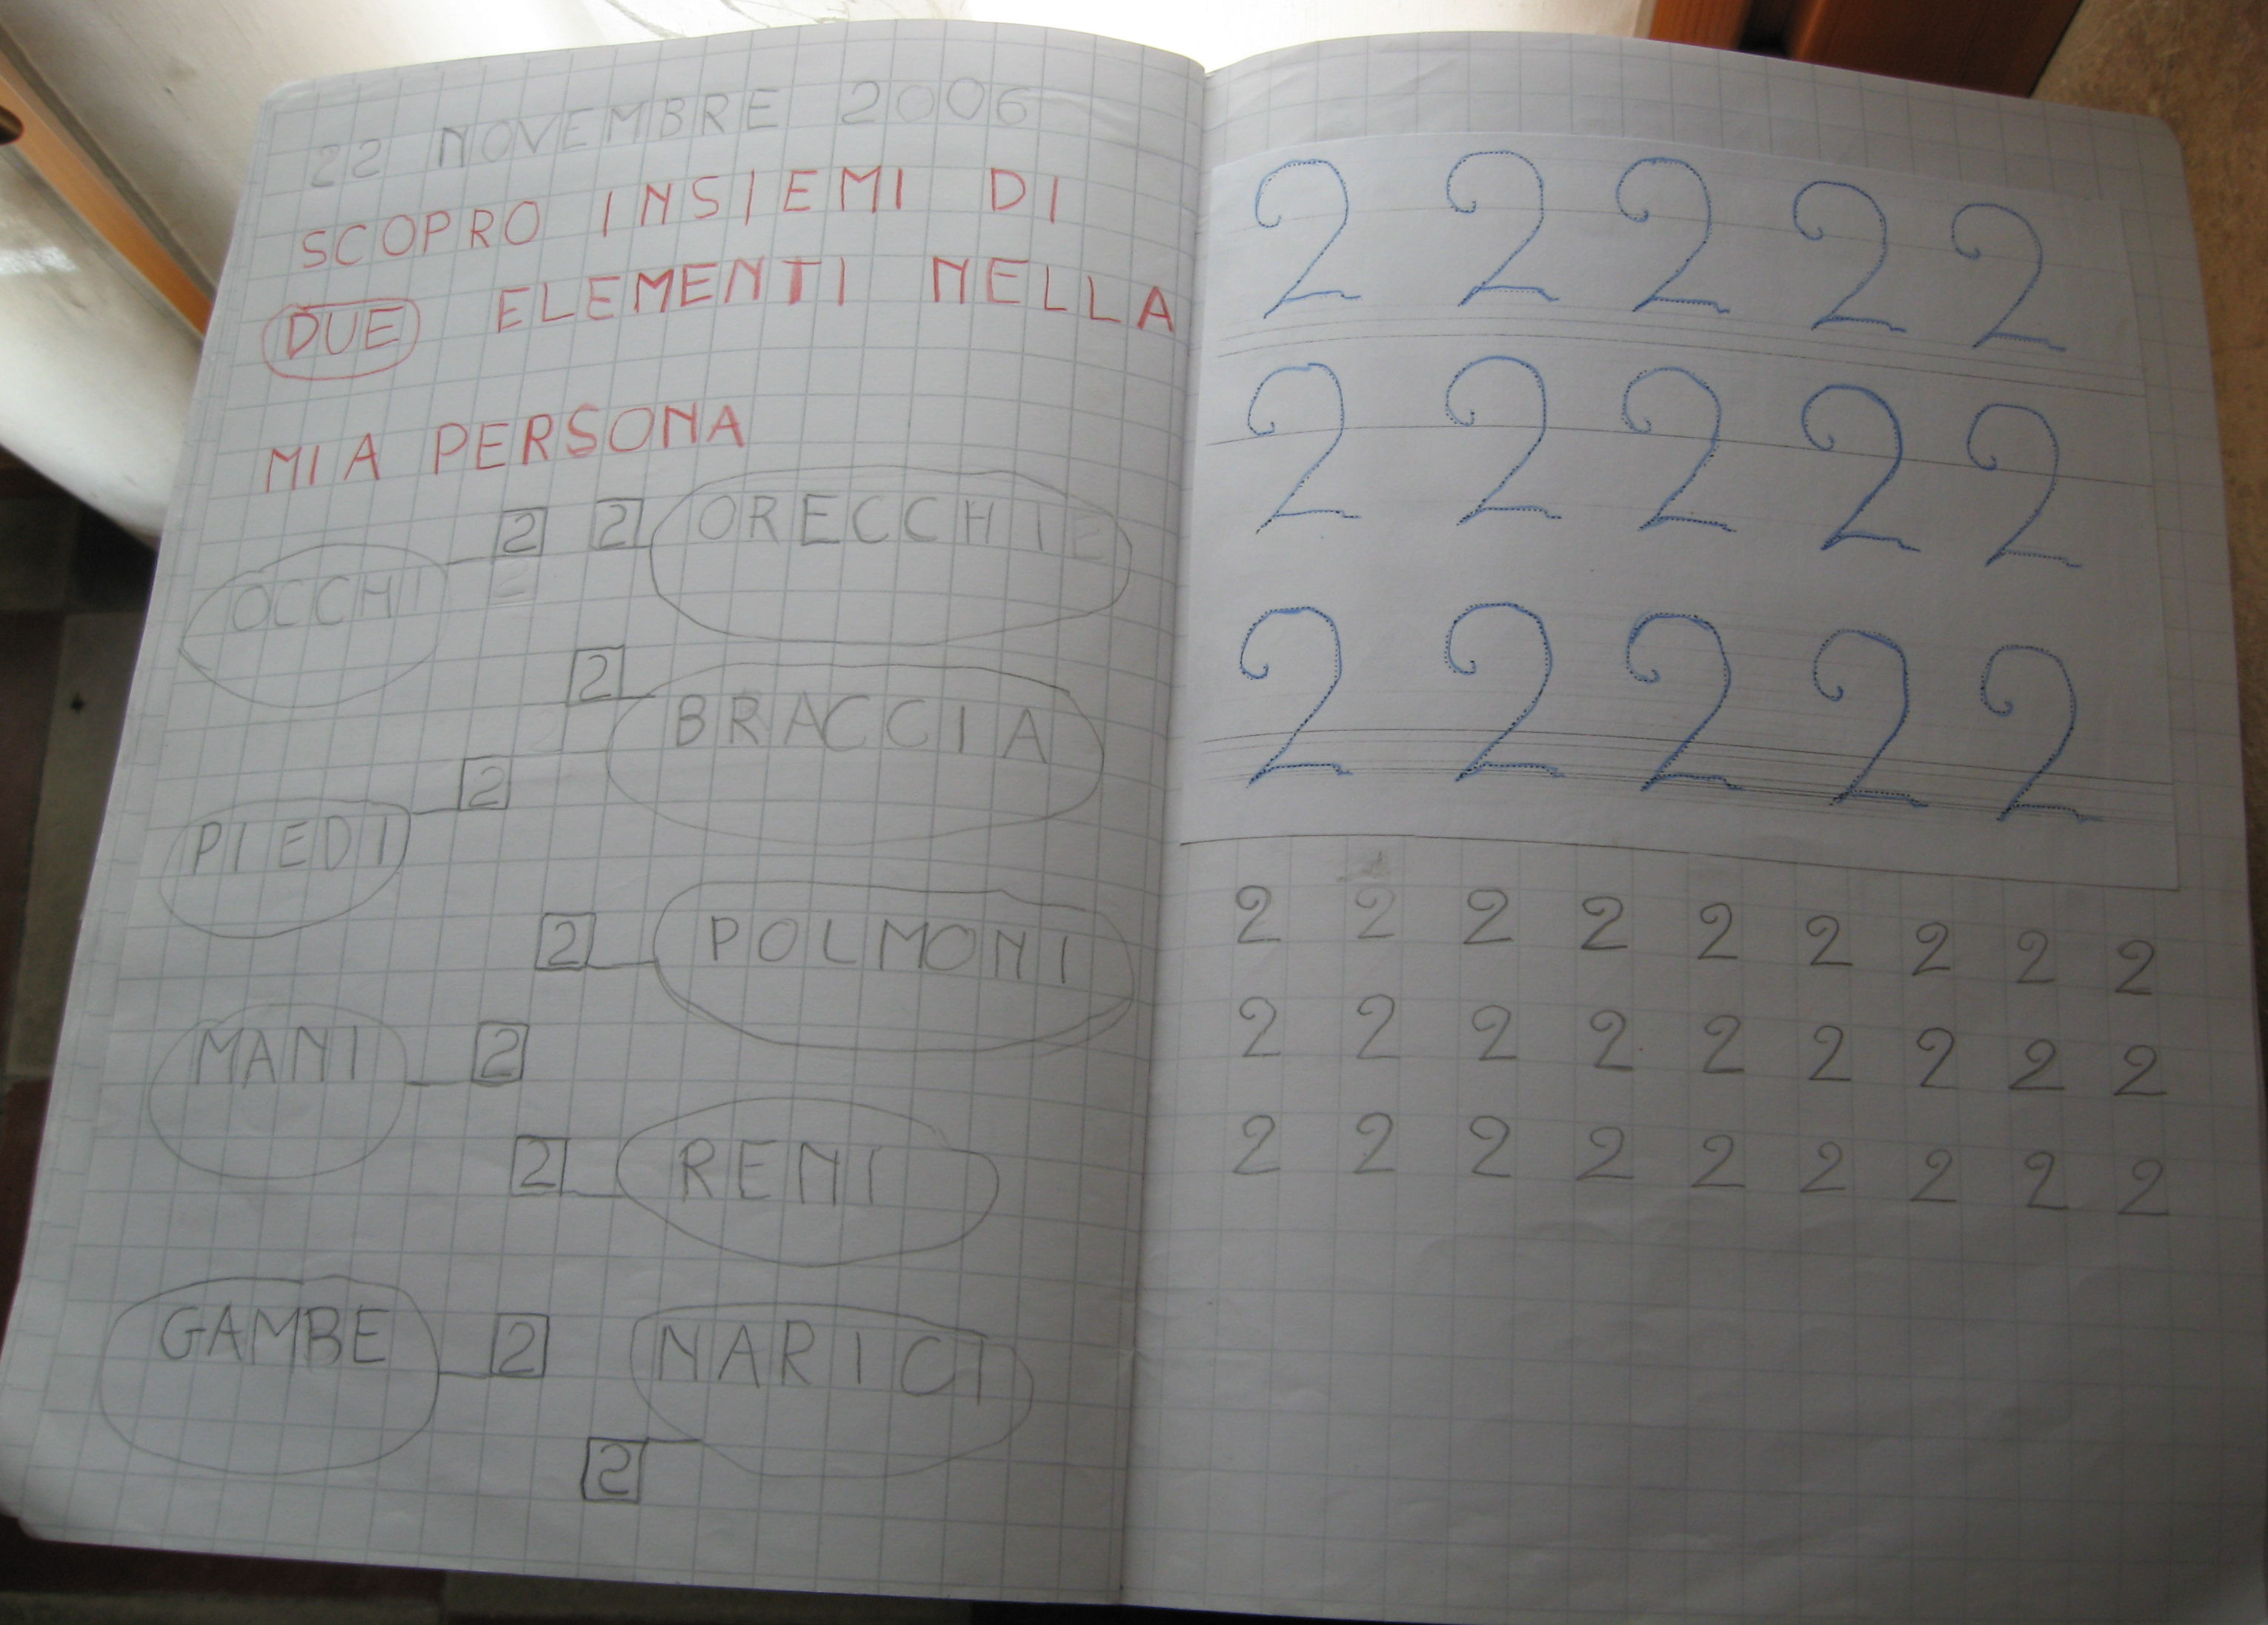 22 NOVEMBRE 2006
SCOPRO INSIEMI DI
DUE ELEMENTI NELLA
MIA PERSONA
OCCHI 2
2 ORECCHIE
2 BRACCIA
PIEDI 2
2 POLMONI
MANI 2
2 RENI
GAMBE 2
NARICI
2
2 2 2 2 2
2 2 2 2 2
2 2 2 2 2
2 2 2 2 2 2 2 2 2
2 2 2 2 2 2 2 2 2
2 2 2 2 2 2 2 2 2